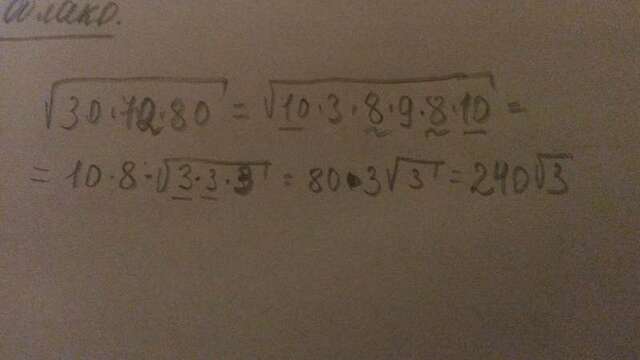 √30·72·80 = √10·3·8·9·8·10 =
= 10·8·√3·3·3 = 80·3√3 = 240√3